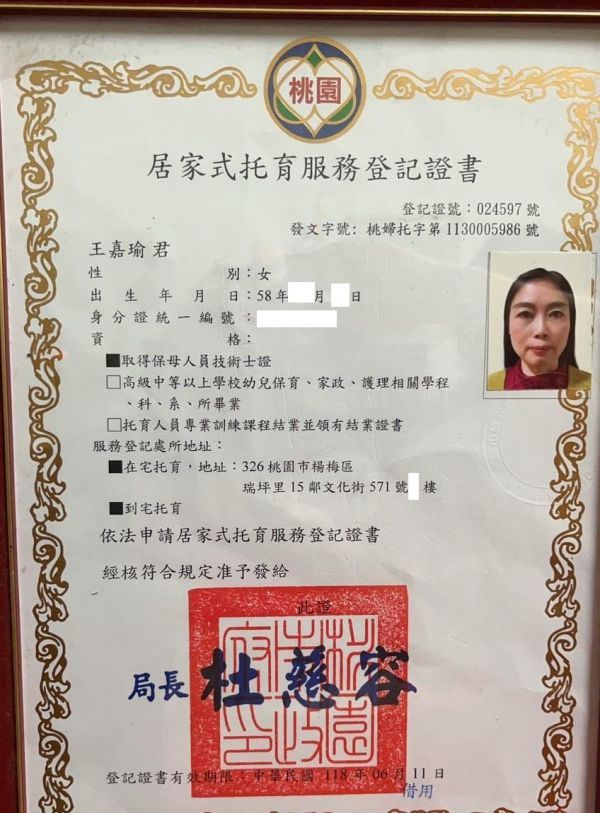 桃園
居家式托育服務登記證書
登記證號：024597 號
發文字號: 桃婦托字第 1130005986 號
王嘉瑜 君
性別：女
出生年月日：58 年 月 日
身分證統一編號：
資格：
■取得保母人員技術士證
□高級中等以上學校幼兒保育、家政、護理相關學程
、科、系、所畢業
□托育人員專業訓練課程結業並領有結業證書
服務登記處所地址：
■在宅托育，地址：326 桃園市楊梅區
瑞坪里 15 鄰文化街 571 號 樓
■到宅托育
依法申請居家式托育服務登記證書
經核符合規定准予發給
此證
局長 杜慈容
登記證書有效期限：中華民國 118 年 06 月 11 日
借用